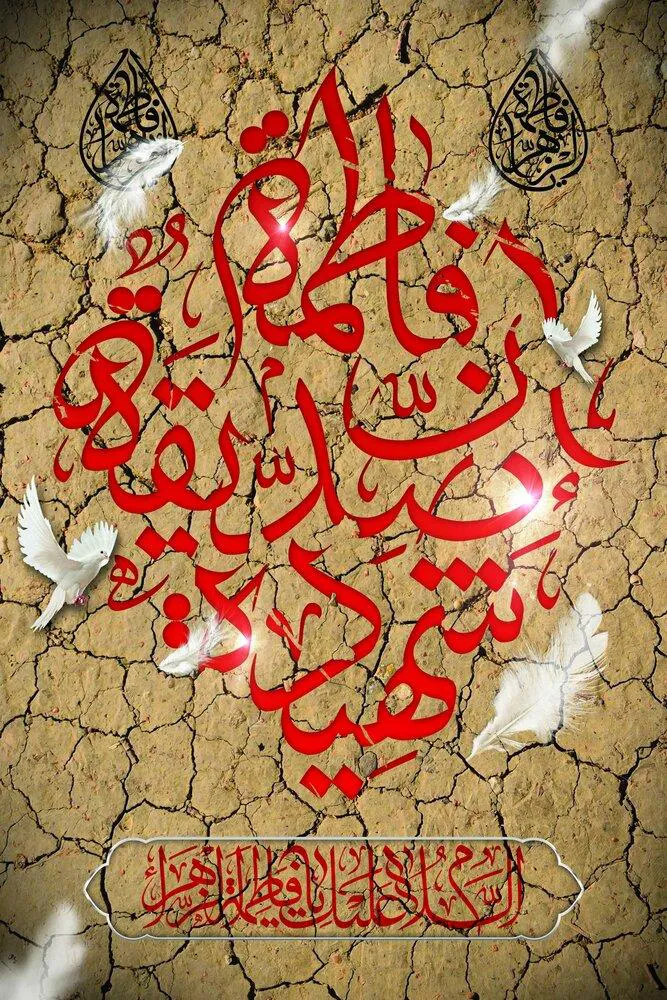 فاطمة الزهراء
فاطمة الزهراء
إِنَّ فاطمة
صِدِّيقَةٌ
شَهِيدَةٌ
السلام عليك يا فاطمة الزهراء